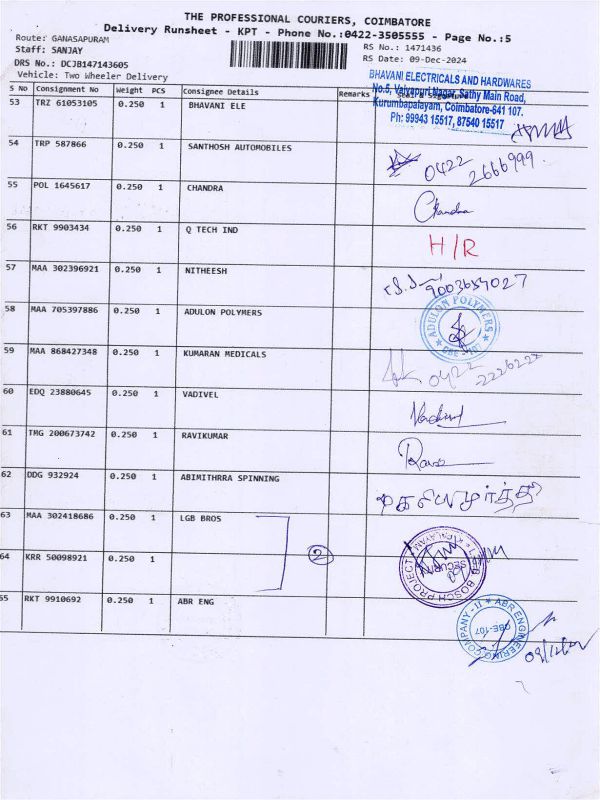 THE PROFESSIONAL COURIERS, COIMBATORE
Delivery Runsheet - KPT - Phone No.:0422-3505555 - Page No.:5
Route: GANASAPURAM
RS No.: 1471436
Staff: SANJAY
RS Date: 09-Dec-2024
DRS No.: DCJB147143605
Vehicle: Two Wheeler Delivery
S No Consignment No Weight PCS Consignee Details Remarks
BHAVANI ELECTRICALS AND HARDWARES
No.5, Vaiyapuri Nagar, Sathy Main Road,
Kurumbapalayam, Coimbatore-641 107.
Ph: 99943 15517, 87540 15517
53 TRZ 61053105 0.250 1 BHAVANI ELE
54 TRP 587866 0.250 1 SANTHOSH AUTOMOBILES 0422 2666999
55 POL 1645617 0.250 1 CHANDRA Chandra
56 RKT 9903434 0.250 1 Q TECH IND H/R
57 MAA 302396921 0.250 1 NITHEESH 9003657027
58 MAA 705397886 0.250 1 ADULON POLYMERS ADULON POLYMERS
59 MAA 868427348 0.250 1 KUMARAN MEDICALS 0422
60 EDQ 23880645 0.250 1 VADIVEL
61 TMG 200673742 0.250 1 RAVIKUMAR
62 DDG 932924 0.250 1 ABIMITHRRA SPINNING
63 MAA 302418686 0.250 1 LGB BROS
2
64 KRR 50098921 0.250 1 BOSCH PROJECT SECURITY
65 RKT 9910692 0.250 1 ABR ENG ABR ENGINEERING COMPANY - II CBE-107